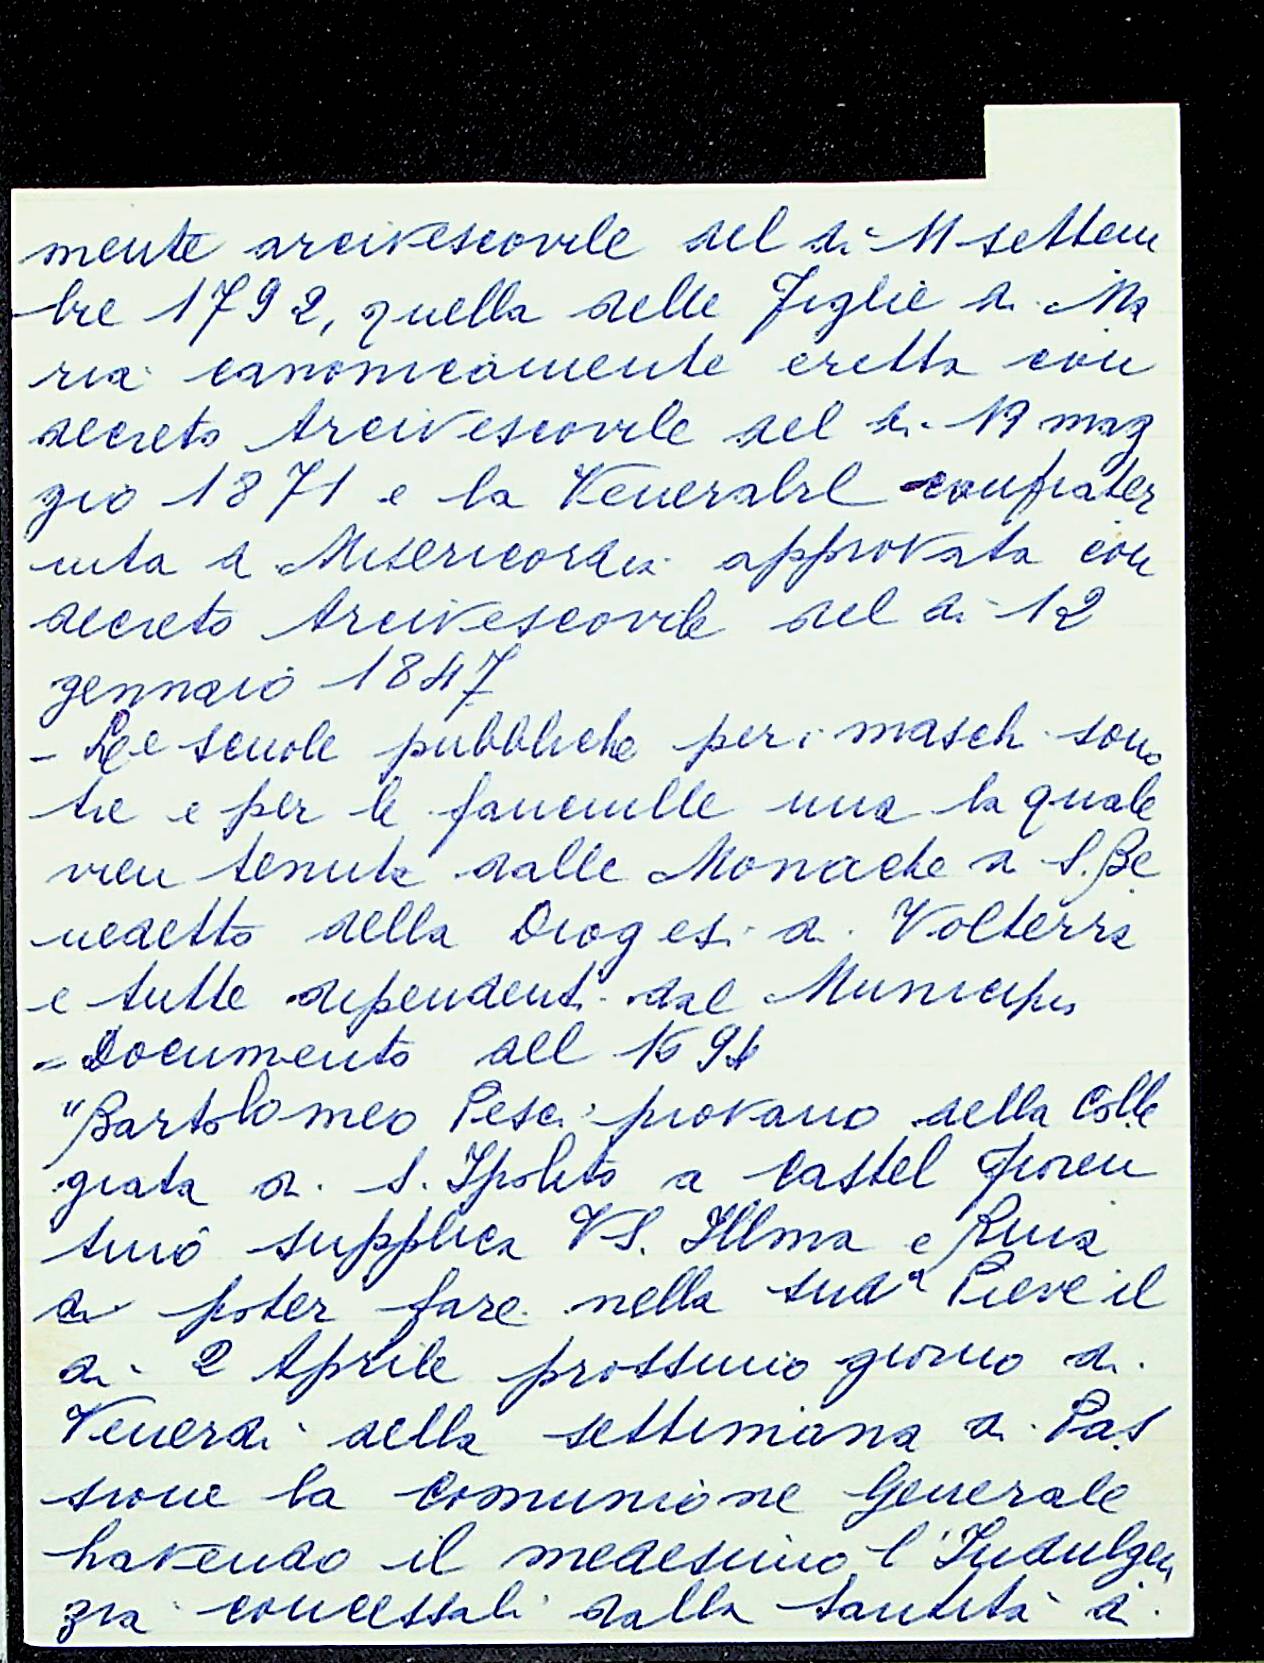 mente arcivescovile del dì 11 settem
bre 1792, quella delle Figlie di Ma
ria canonicamente eretta con
decreto Arcivescovile del dì 19 mag
gio 1871 e la Venerabil confrater
nita di Misericordia approvata con
decreto Arcivescovile del dì 12
gennaio 1847
- Le scuole pubbliche per i maschi sono
tre e per le fanciulle una la quale
vien tenuta dalle Monache di S. Be
nedetto della Diogesi di Volterra
e tutte dipendenti dal Municipio
= Documento del
"Bartolomeo Pesci provano della Colle
giata di S. Ipolito a Castel fioren
tino supplica VS. Illma e Rma
di poter fare nella sudª Pieve il
dì 2 Aprile prossimo giorno di
Venerdì della settimana di Pas
sione la Comunione Generale
havendo il medesimo l'Indulgen
zia concessali dalla Santità di